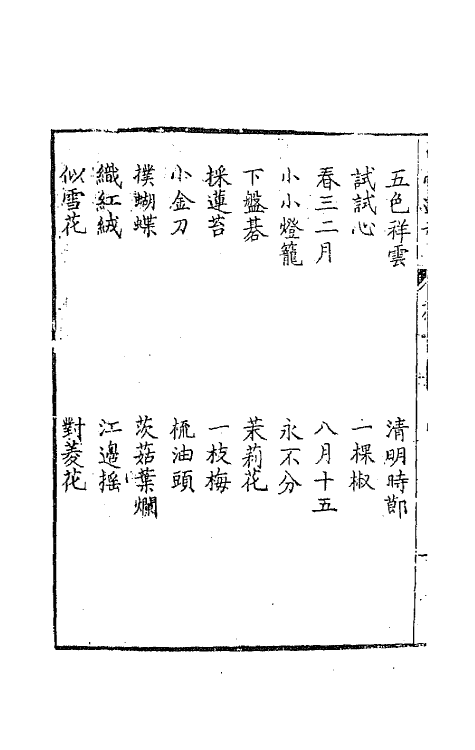 五色祥雲　清明時節
試試心　一棵椒
春三二月　八月十五
小小燈籠　永不分
下盤碁　茉莉花
採蓮苔　一枝梅
小金刀　梳油頭
撲蝴蝶　茨菇葉爛
織紅絨　江邊摇
似雪花　對菱花